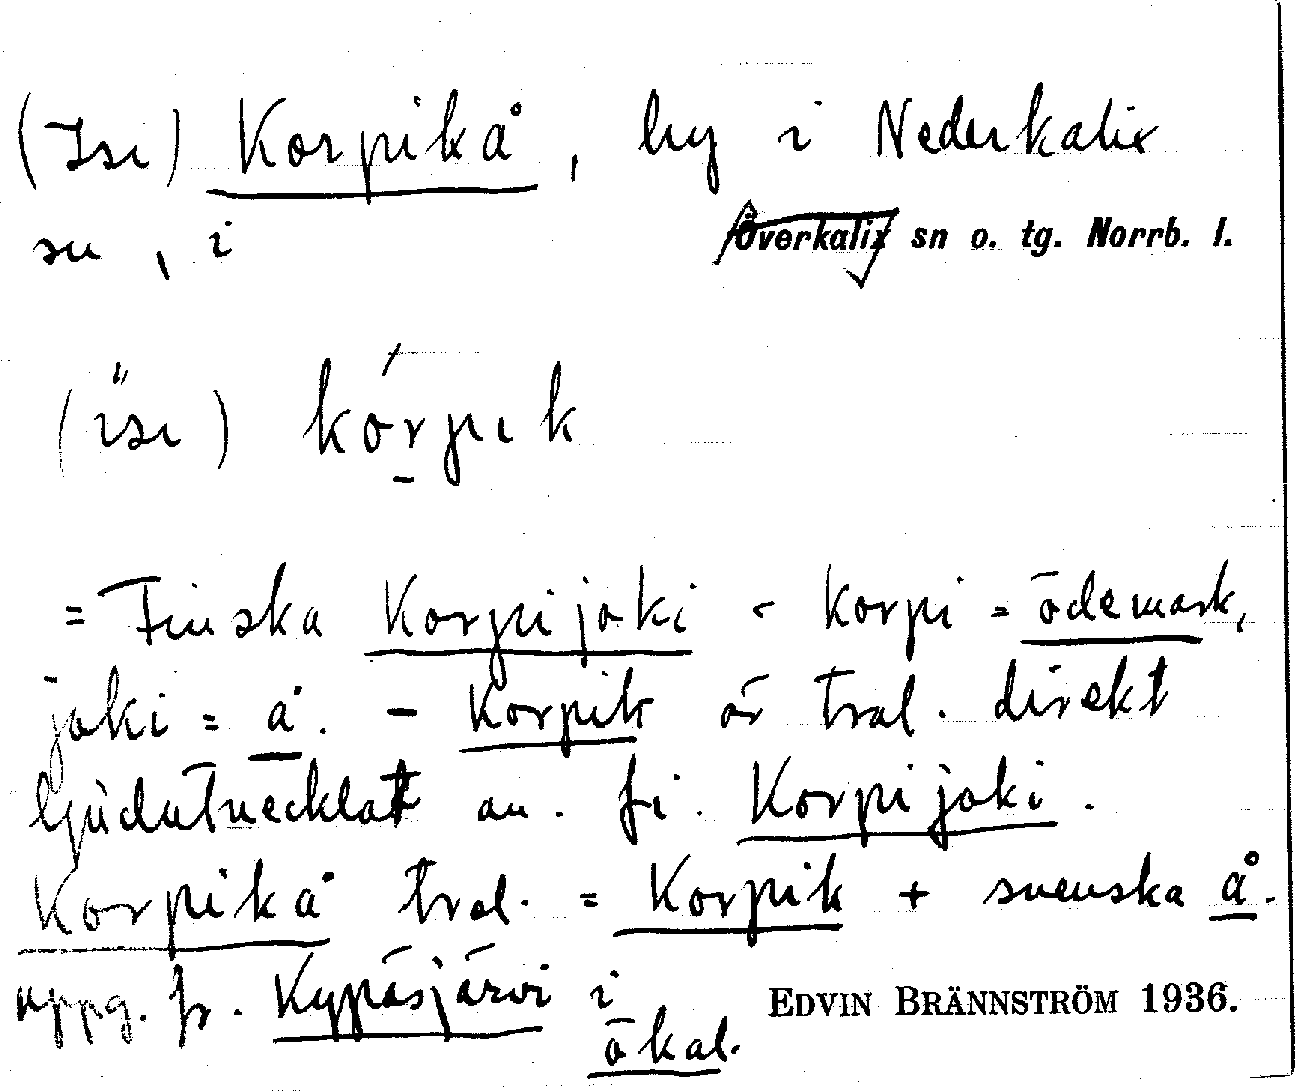 (Isi) Korpikå, by i Nederkalix
sn, i Överkalix sn o. tg. Norrb. l.
(ïsi) kórpik
= Finska Korpijoki - korpi = ödemark,
joki = å. - Korpik är trol. direkt
ljudutvecklat av. fi. Korpijoki.
Korpikå trol. = Korpik + svenska å.
uppg. fr. Kypäsjärvi i
ökal.
EDVIN BRÄNNSTRÖM 1936.